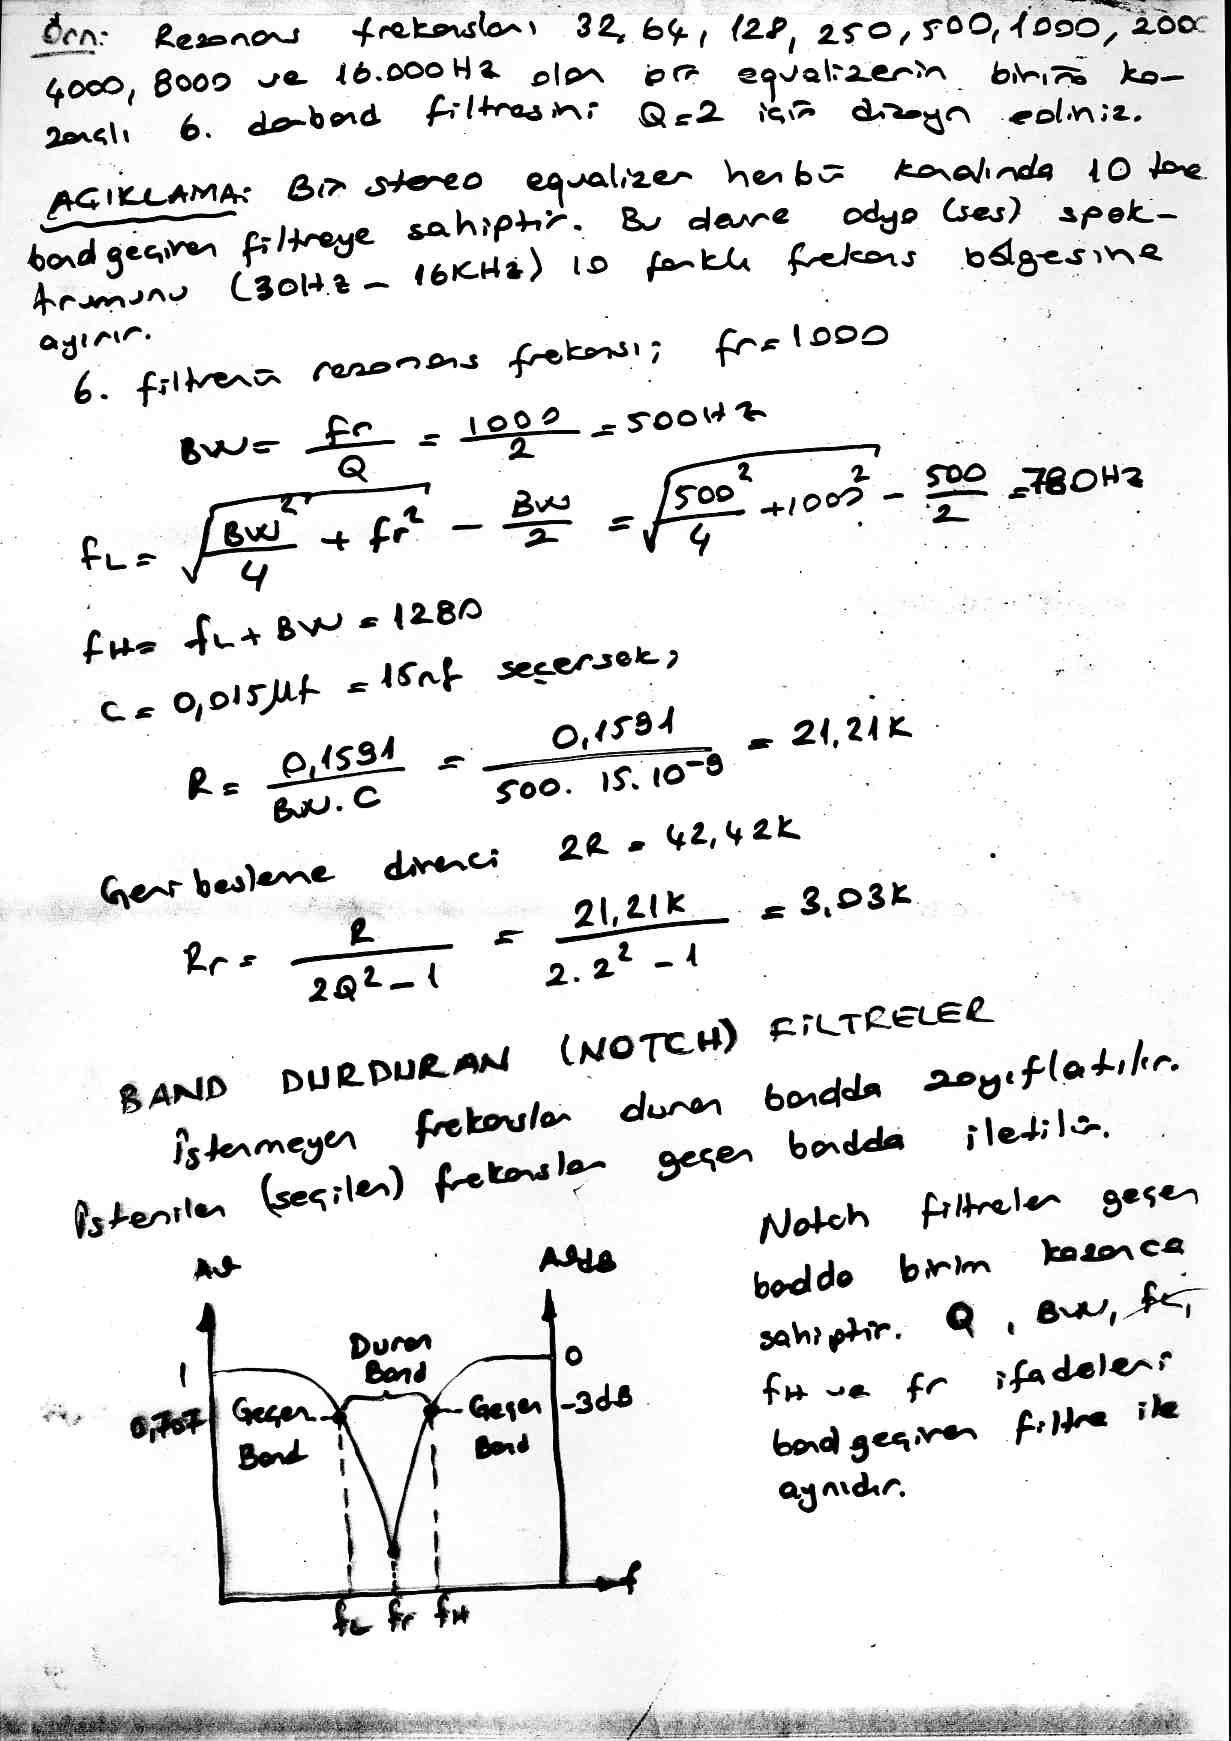 Örn: Resonans frekansları 32, 64, 128, 250, 500, 1000, 2000
4000, 8000 ve 16.000Hz olan bir equalizerin birim ka-
zançlı 6. darband filtresini Q=2 için dizayn ediniz.
AÇIKLAMA: Bir stereo equalizer herbir kanalında 10 tane
band geçiren filtreye sahiptir. Bu devre odyo (ses) spek-
trumunu (30Hz - 16KHz) 10 farklı frekans bölgesine
ayırır.
6. filtrenin resonans frekansı; fr=1000
BW= fr/Q = 1000/2 = 500Hz
fL= √(BW²/4 + fr²) - BW/2 = √(500²/4 + 1000²) - 500/2 = 780Hz
fH= fL + BW = 1280
C= 0,015µf = 15nf seçersek;
R= 0,1591/BW.C = 0,1591/500.15.10⁻⁹ = 21,21K
Geri besleme direnci 2R = 42,42K
Rr= R/2Q²-1 = 21,21K/2.2²-1 = 3,03K
BAND DURDURAN (NOTCH) FİLTRELER
İstenmeyen frekanslar duran bandda zayıflatılır.
İstenilen (seçilen) frekanslar geçen bandda iletilir.
Notch filtreler geçen
badda birim kazanca
sahiptir. Q, BW, fL,
fH ve fr ifadeleri
band geçiren filtre ile
aynıdır.
Av
AvdB
1
0,707
Geçen
Band
Duran
Band
Geçen
Band
0
-3dB
f
fL fr fH